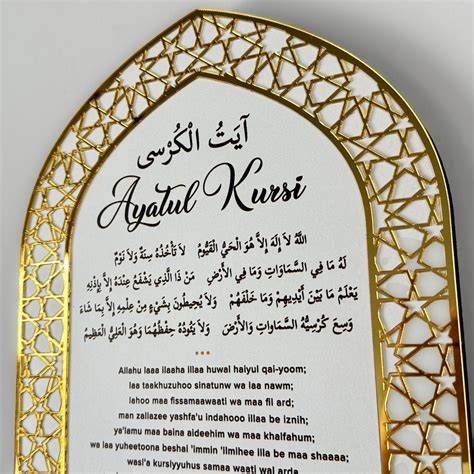 آيَتُ الْكُرْسِي
Ayatul Kursi
اللهُ لاَ إِلَهَ إِلاَّ هُوَ الْحَيُّ الْقَيُّومُ لاَ تَأْخُذُهُ سِنَةٌ وَلاَ نَوْمٌ
لَهُ مَا فِي السَّمَاوَاتِ وَمَا فِي الأَرْضِ مَنْ ذَا الَّذِي يَشْفَعُ عِنْدَهُ إِلاَّ بِإِذْنِهِ
يَعْلَمُ مَا بَيْنَ أَيْدِيهِمْ وَمَا خَلْفَهُمْ وَلاَ يُحِيطُونَ بِشَيْءٍ مِنْ عِلْمِهِ إِلاَّ بِمَا شَاءَ
وَسِعَ كُرْسِيُّهُ السَّمَاوَاتِ وَالأَرْضَ وَلاَ يَئُودُهُ حِفْظُهُمَا وَهُوَ الْعَلِيُّ الْعَظِيمُ
Allahu laaa ilaaha illaa huwal haiyul qai-yoom;
laa taakhuzuhoo sinatunw wa laa nawm;
lahoo maa fissamaawaati wa maa fil ard;
man zallazee yashfa'u indahooo illaa be iznih;
ya'lamu maa baina aideehim wa maa khalfahum;
wa laa yuheetoona beshai 'immin 'ilmihee illa be maa shaaaa;
wasi'a kursiyyuhus samaa waati wal arda